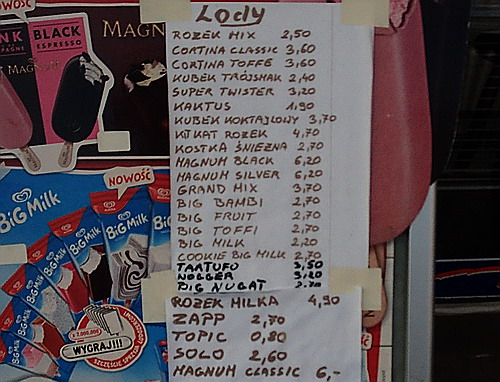 NOWOŚĆ
Lody
ROŻEK MIX 2,50
CORTINA CLASSIC 3,60
CORTINA TOFFE 3,60
KUBEK TRÓJSMAK 2,40
SUPER TWISTER 3,20
KAKTUS 1,90
KUBEK KOKTAJLOWY 3,70
KITKAT ROŻEK 4,70
KOSTKA ŚNIEŻNA 2,70
MAGNUM BLACK 6,20
MAGNUM SILVER 6,20
GRAND MIX 3,70
BIG BAMBI 2,70
BIG FRUIT 2,70
BIG TOFFI 2,70
BIG MILK 2,20
COOKIE BIG MILK 2,70
TARTUFO 3,50
NOGGER 3,20
BIG NUGAT 2,70
ROŻEK MILKA 4,90
ZAPP 2,70
TOPIC 0,80
SOLO 2,60
MAGNUM CLASSIC 6,-
BLACK
ESPRESSO
MAGN
NOWOŚĆ
BiG Milk
BiG Milk
WYGRAJ!!!